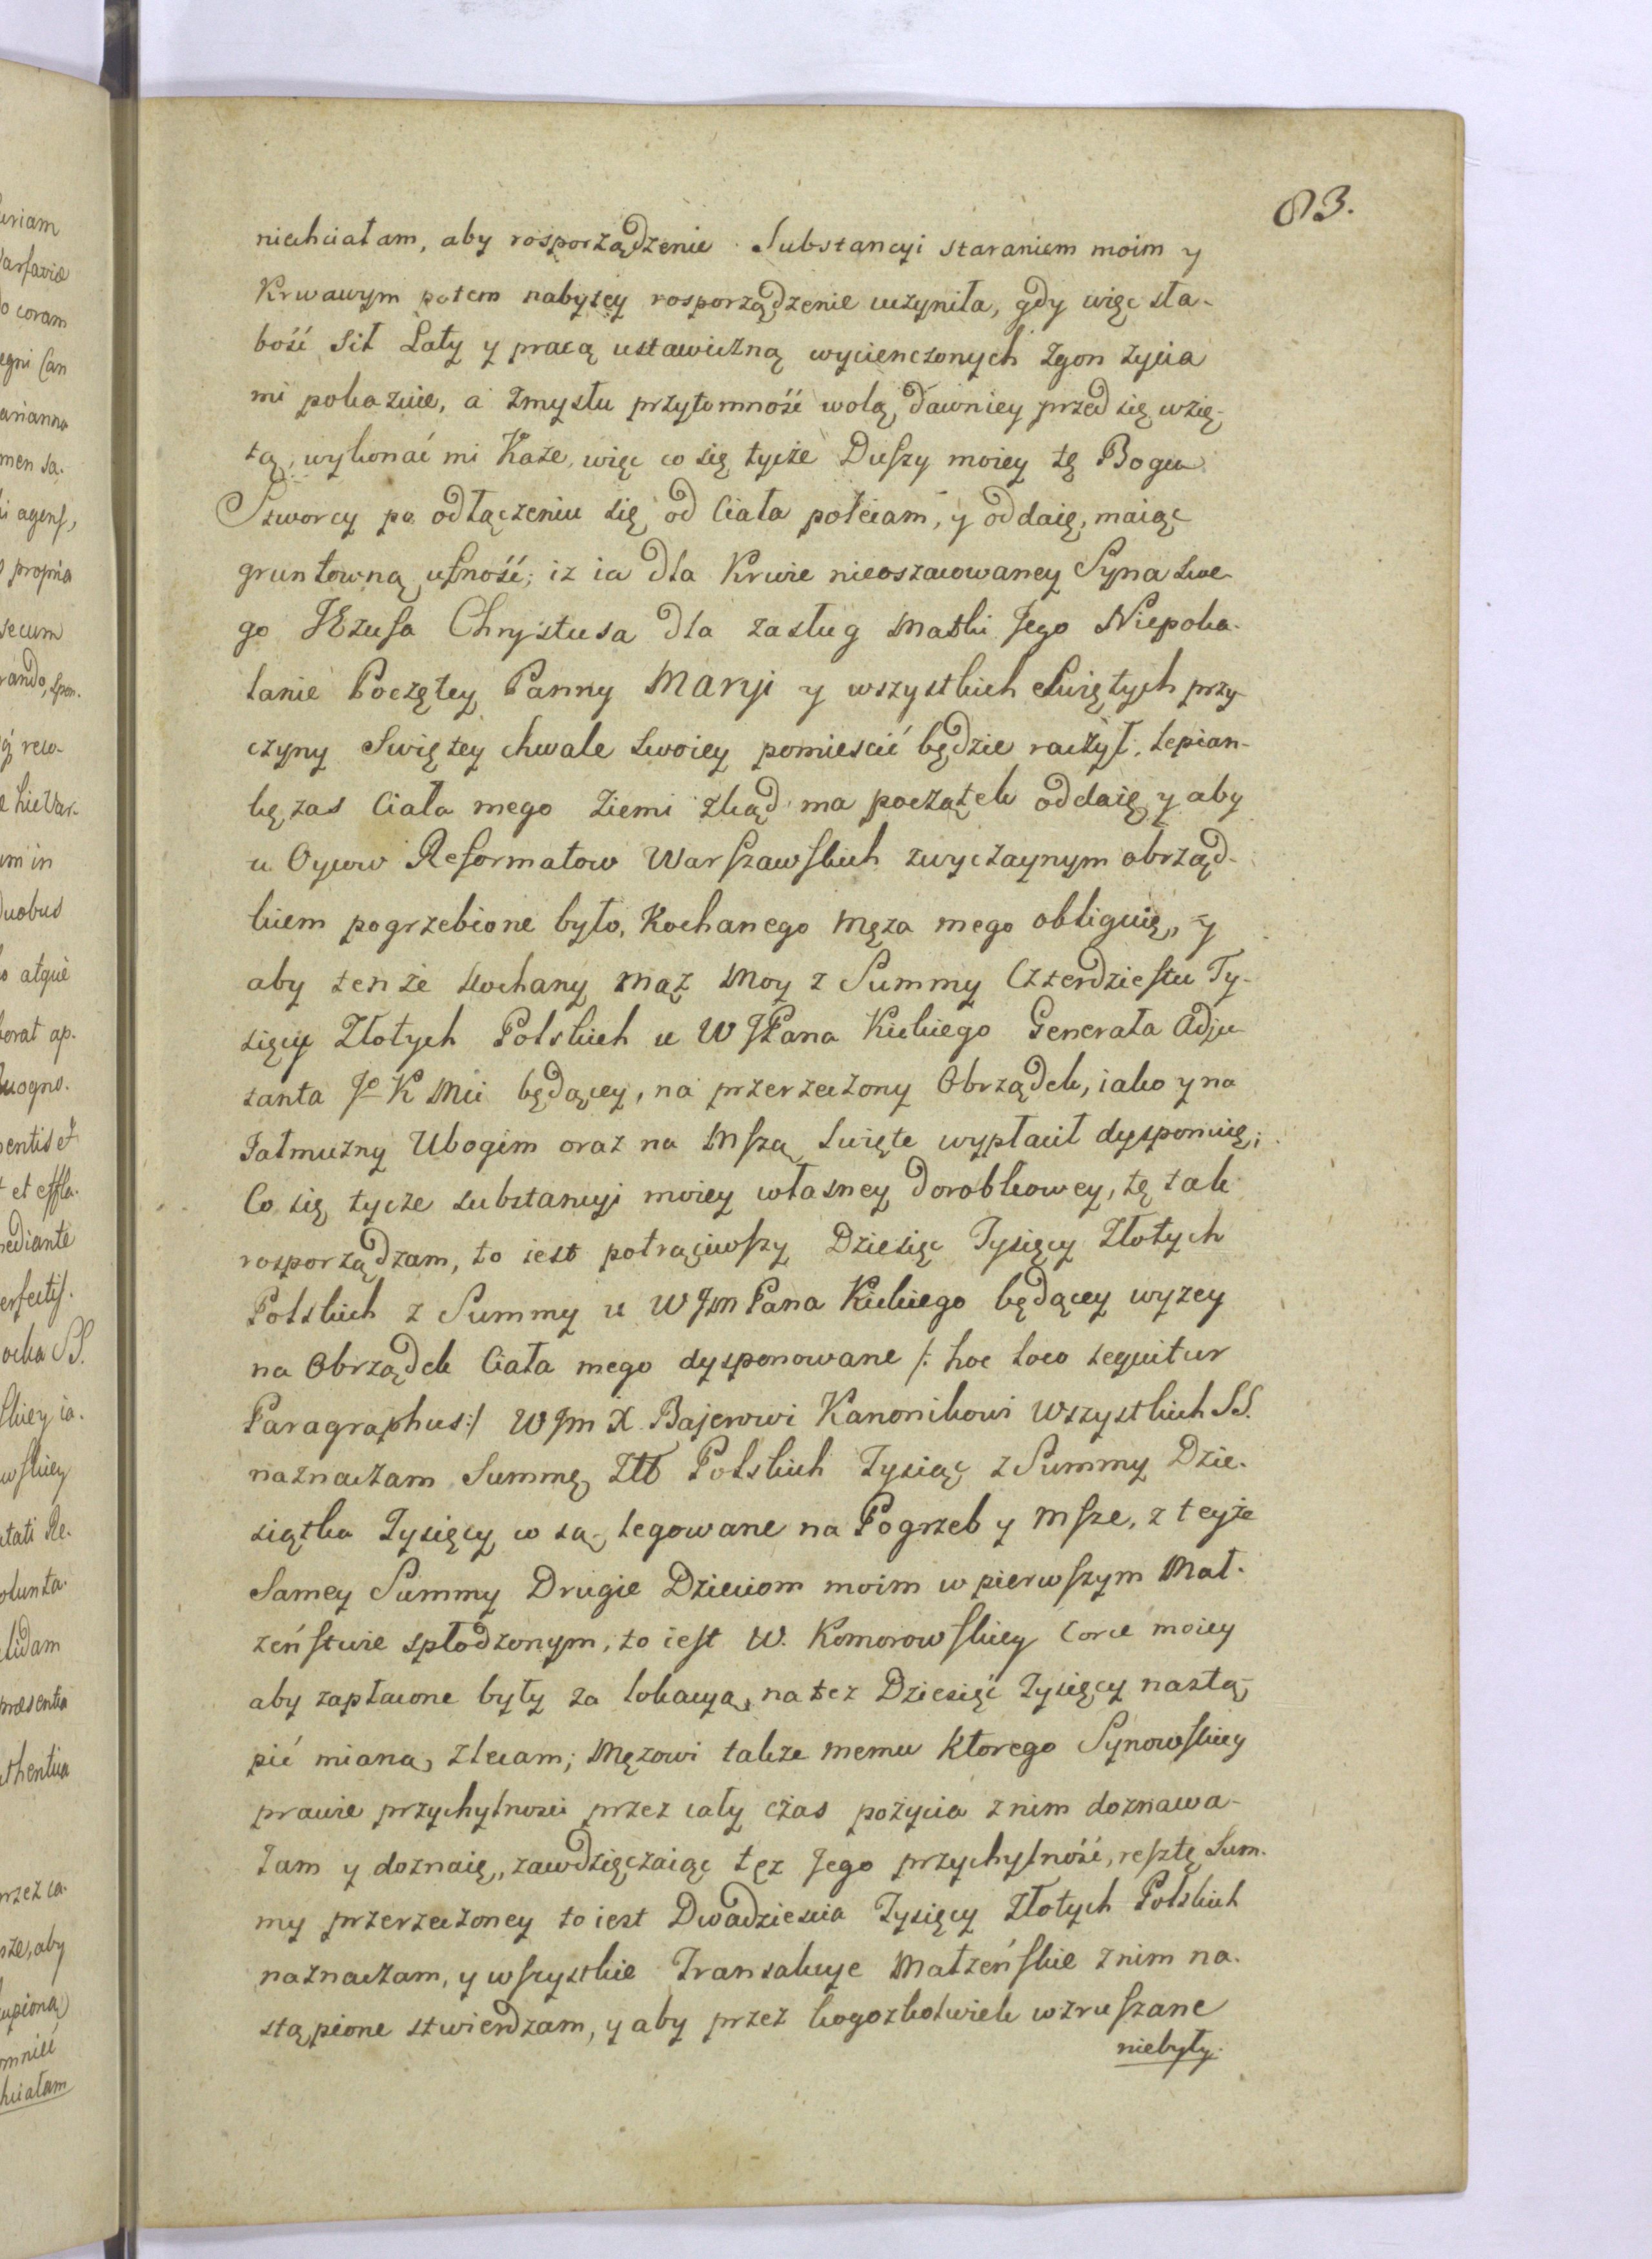 83.
niechciałam, aby rosporządzenie Substancyi staraniem moim y
Krwawym potem nabytey rosporządzenie uczyniła, gdy więc sła-
bość Sił Laty y pracą ustawiczną wycienczonych Zgon życia
mi pokazuie, a Zmysłu przytomność wolą dawniey przed się wzię-
tą, wykonać mi Każe, więc co się tycze Duszy moiey tę Bogu
Stworcy po odłączeniu się od Ciała polecam, y oddaię, maiąc
gruntowną ufność; iz ia dla Krwie nieoszacowaney Syna Swe-
go JEzusa Chrystusa dla zasług Matki Jego Niepoka-
lanie Poczętey Panny Maryi y wszystkich Swiętych przy-
czyny Swiętey chwale Swoiey pomieścić będzie raczył. Lepian-
kę zas Ciała mego Ziemi zkąd ma początek oddaię y aby
u Oycow Reformatow Warszawskich zwyczaynym obrząd-
kiem pogrzebione było, Kochanego Męza mego obliguię, y
aby tenże Kochany Mąż Moy z Summy Czterdziestu Ty-
sięcy Złotych Polskich u W JPana Kickiego Generała Adju-
tanta Jo K Mci będącey, na przerzeczony Obrządek, iako y na
Jałmużny Ubogim oraz na Mszą Swięte wypłacił dysponuię;
Co się tycze substancyi moiey własney dorobkowey, tę tak
rosporządzam, to iest potrąciwszy Dziesięc Tysięcy Złotych
Polskich z Summy u W Jm Pana Kickiego będącey wyzey
na Obrządek Ciała mego dysponowane /: hoc loco sequitur
Paragraphus:/ W Jm X Bajerowi Kanonikowi Wszystkich SS.
naznaczam Summę Złł Polskich Tysiąc z Summy Dzie-
siątka Tysięcy co są legowane na Pogrzeb y Msze, z teyże
Samey Summy Drugie Dzieciom moim w pierwszym Mał-
żeństwie spłodzonym, to iest W. Komorowskiey Corce moiey
aby zapłacone były za lokacyą, na tez Dziesięć Tysięcy nastą-
pić mianą, zlecam; Męzowi także memu Ktorego Synowskiey
prawie przychylnosci przez cały czas pożycia z nim doznawa-
łam y doznaię, zawdzięczaiąc tęz Jego przychylność, resztę Sum-
my przerzeczoney to iest Dwadziescia Tysięcy Złotych Polskich
naznaczam, y wszystkie Transakcye Małżeńskie z nim na-
stąpione stwierdzam, y aby przez kogożkolwiek wzruszane
niebyły.